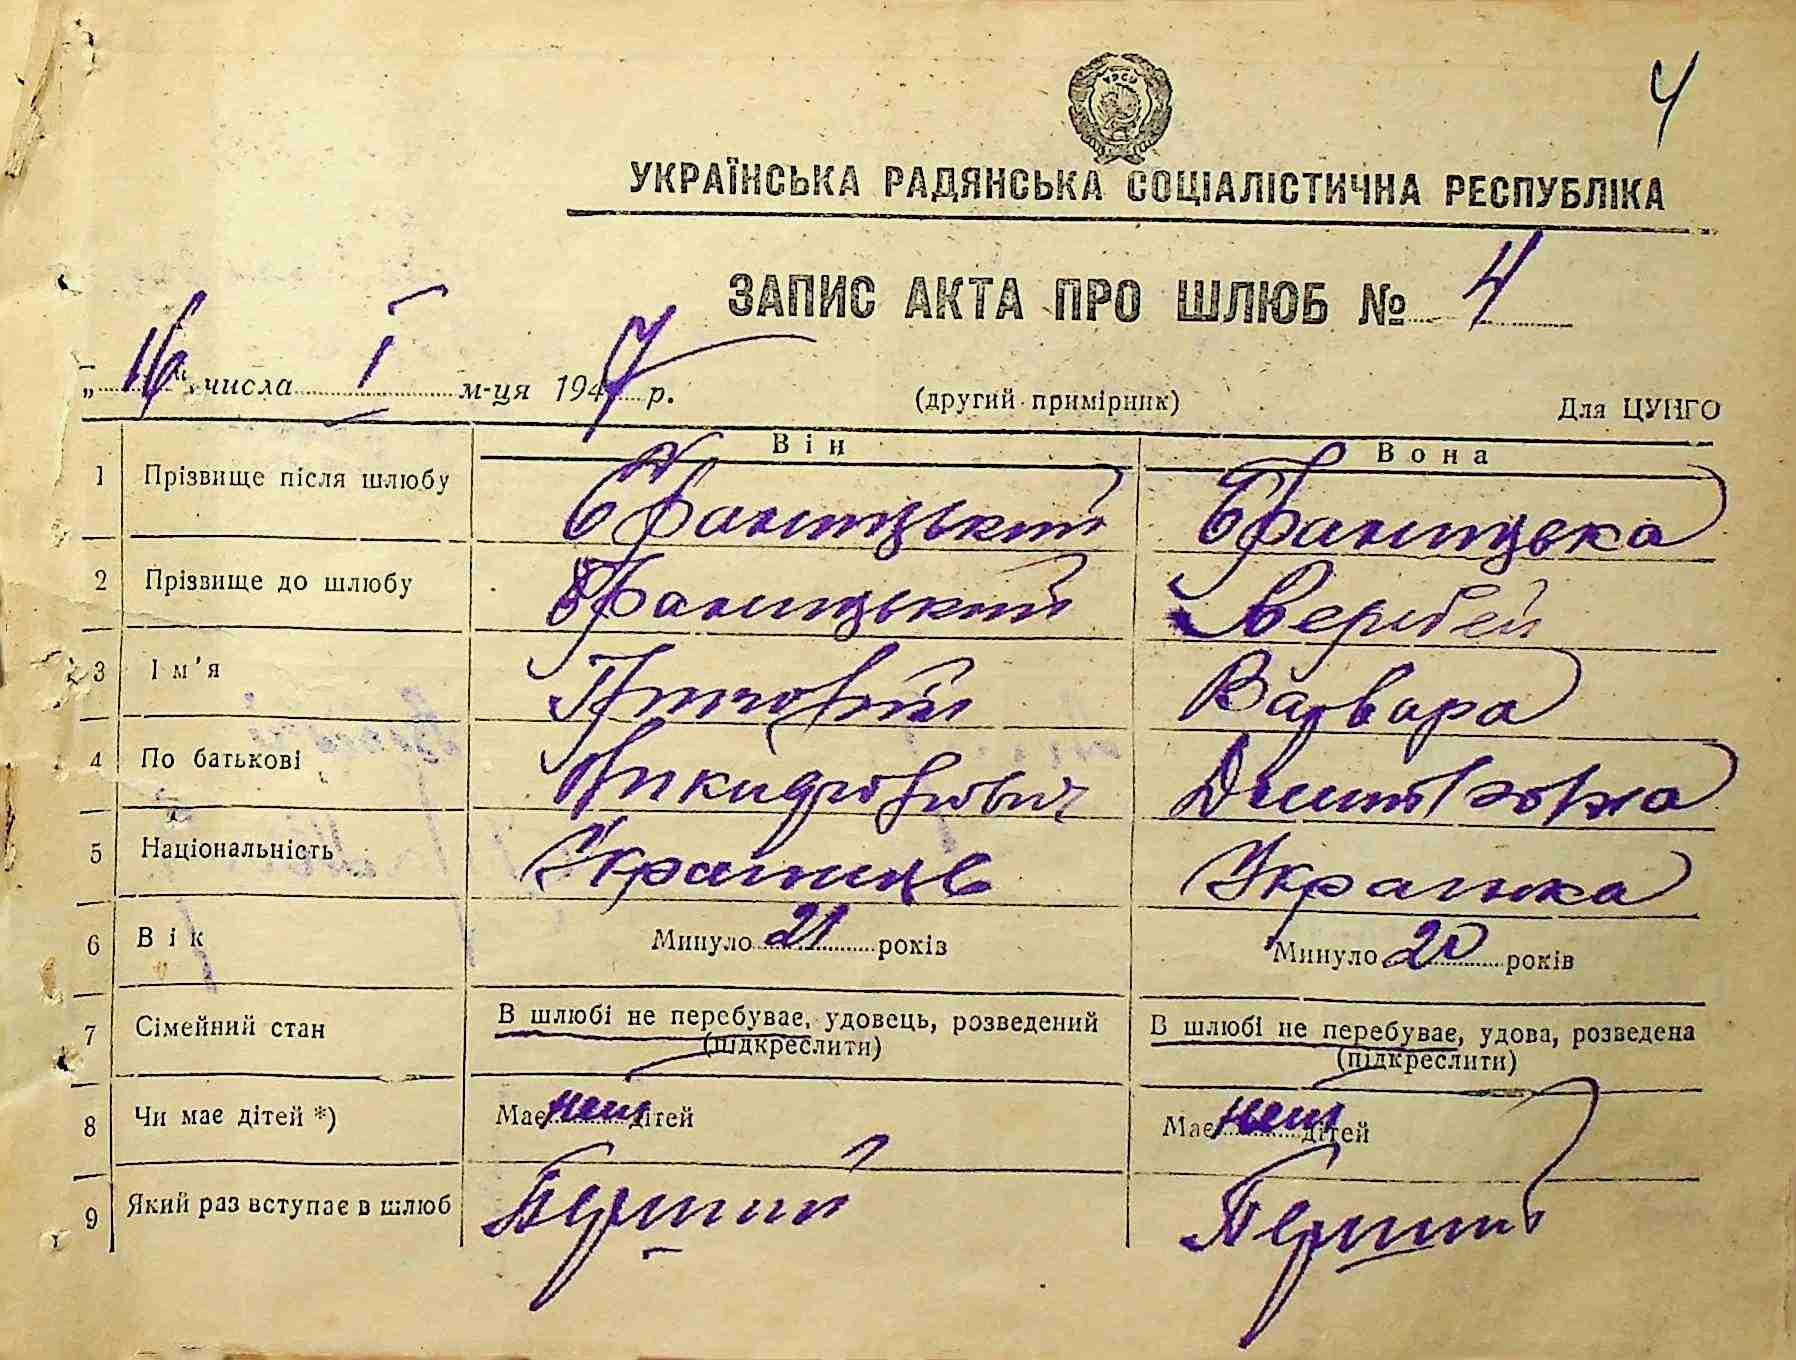 4
УКРАЇНСЬКА РАДЯНСЬКА СОЦІАЛІСТИЧНА РЕСПУБЛІКА
ЗАПИС АКТА ПРО ШЛЮБ № 4
„16“ числа I м-ця 1947 р. (другий примірник) Для ЦУНГО
Він Вона
1 Прізвище після шлюбу
2 Прізвище до шлюбу Вербей
3 Ім'я Григорій Варвара
4 По батькові
5 Національність Українець Українка
6 Вік Минуло 21 років Минуло 20 років
7 Сімейний стан В шлюбі не перебуває, удовець, розведений (підкреслити) В шлюбі не перебуває, удова, розведена (підкреслити)
8 Чи має дітей *) Має нет дітей Має нет дітей
9 Який раз вступає в шлюб Перший Перший